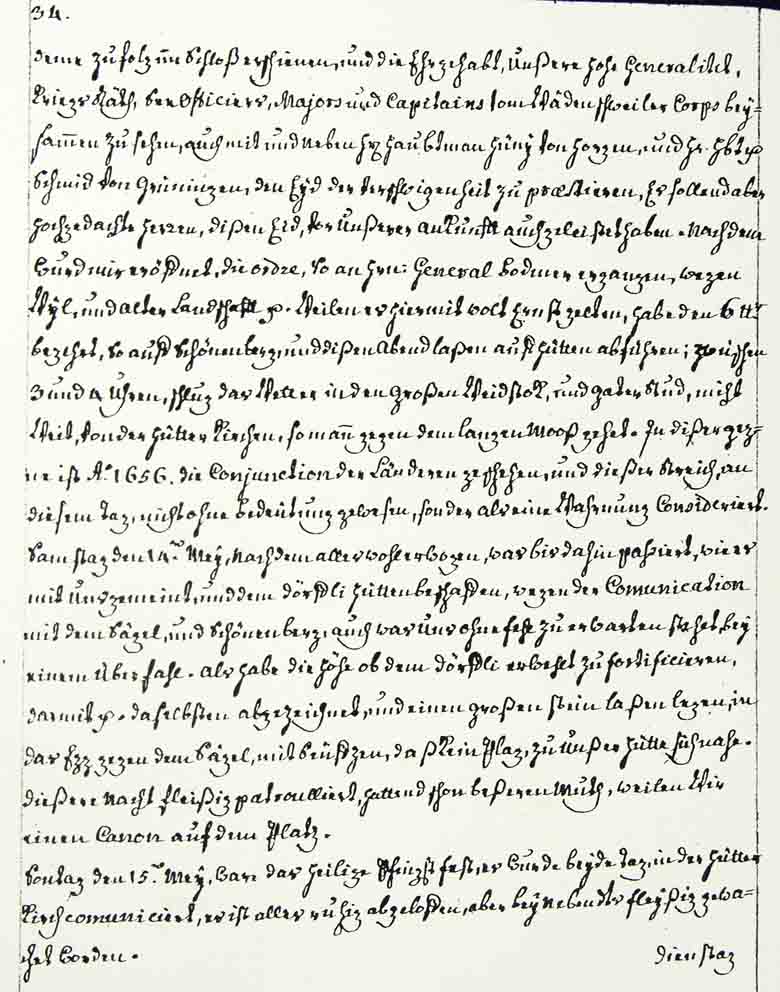 34.
deme zufolg im Schloß erschienen, und die Ehr gehabt, Unßere hohe Generalitet,
Kriegs Räth, HEn Officiers, Majors und Capitains vom Wädenschweiler Corps bey=
sammen zu sehen, auch mit und neben Hr Haubtman Hüny von Horgen, und Hr. Hbt.
Schmid von Grüningen, den Eyd der Verschwigenheit zu præstieren, Es sollend aber
hochgedachte Herren, dißen Eid, vor Unßerer ankunfft auch geleistet haben. Nachdeme
Wurd mir eröffnet, die ordre, so an Hrn: General Bodmer ergangen, wegen
Wyl, und alter Landschafft Weilen es hiermit wolt Ernst gelten, habe den 6
begehrt, so auff Schönenberg, und dißen Abend laßen auff Hütten abführen; zwüschen
3 und 4 Uhren, schlug das Wetter in den großen Weidstok, und gaben Stud, nicht
Weit, von der Hütter Kirchen, so man gegen dem langen Mooß gehet. In dißer geg=
ne ist Aº 1656. die Conjunction der Länderen geschehen, und dießer Streich, an
diesem tag, nicht ohne Bedeütung gewesen, sonder als eine Wahrnung Consideriert.
Samstag den 14.ten Mey, Nachdem alles wohl erwogen, was bis dahin passiert, wie es
mit Uns gemeint, und dem dörffli Hütten beschaffen, wegen der Comunication
mit dem Sägel, und Schönenberg, auch was Uns ohne fehl zu erwarten stehet, bey
einem Überfahl. Als habe die höhe ob dem dörffli erwehlt zu fortificieren,
darmit daselbsten abgezeichnet, und einen großen Stein laßen legen, in
das Egg gegen dem Sägel, mit Seüfzen, daß kein Plaz, zu Unßer Hütte sich nahe.
dießere Nacht fleißig patroulliert, hattend schon beßeren Muth, weilen Wir
einen Canon auf dem Platz.
Sontag den 15.ten Mey, Ware das Heilige Pfingstfest, es Wurde beyde tag, in der Hütter
Kirch comuniciert, es ist alles ruhig abgeloffen, aber bey Nebendts fleyßig gewa=
chet Worden.
dienstag